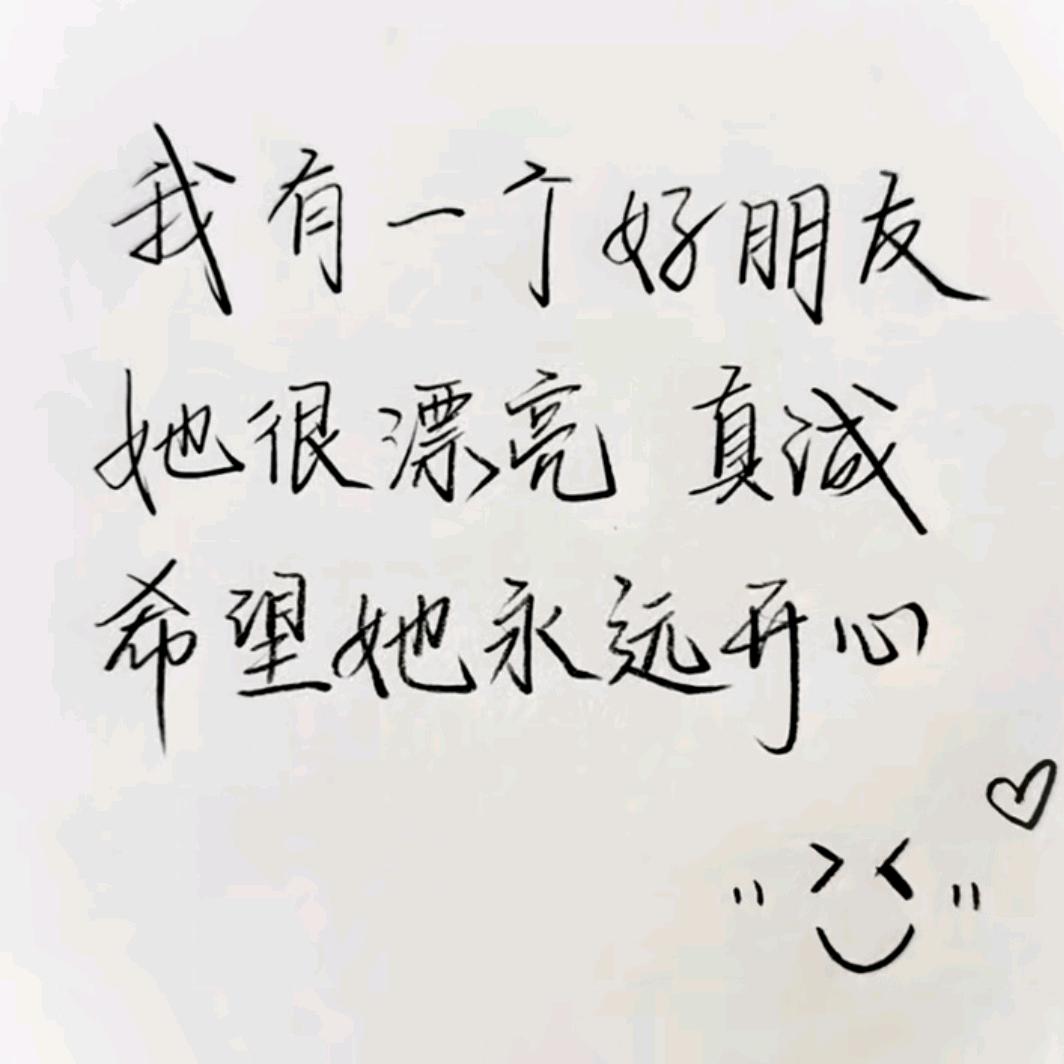 我有一个好朋友
她很漂亮 真诚
希望她永远开心